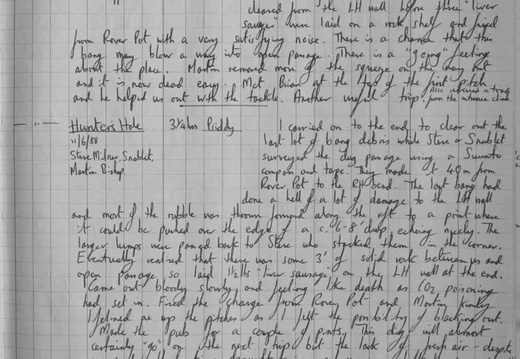 cleared from the LH wall before three "liver
sausage" were laid on a rock shelf and fired
from Rover Pot with a very satisfying noise. There is a chance that this
bang may blow a way into open passage. There is a "going" feeling
about the place. Martin removed more of the squeeze on the way out
and it is now dead easy. Met Brian at the top of the first pitch
and he helped us out with the tackle. Another useful trip.
from the entrance climb
- " - Hunters Hole 3¼hrs Priddy I carried on to the end to clear out the
11/6/88 last lot of bang debris while Steve & Snablet
Steve Milner, Snablet, surveyed the dug passage using a Suunto
Martin Bishop. compass and tape. They made it 40m from
Rover Pot to the RH bend. The last bang had
done a hell of a lot of damage to the LH wall
and most of the rubble was thrown forward along the rift to a point where
it could be pushed over the edge of a c. 6-8' drop, echoing nicely. The
larger lumps were passed back to Steve who stacked them in the corner.
Eventually realised that there was some 3' of solid rock between us and
open passage so laid 1½lbs liver sausage on the LH wall at the end.
Came out bloody slowly and feeling like death as CO2 poisoning
had set in. Fired the charge from Rover Pot and Martin kindly
lifelined me up the pitches as I just the possibility of blacking out.
Made the pub for a couple of pints. This dig will almost
certainly "go" on the next trip but the lack of fresh air - despite